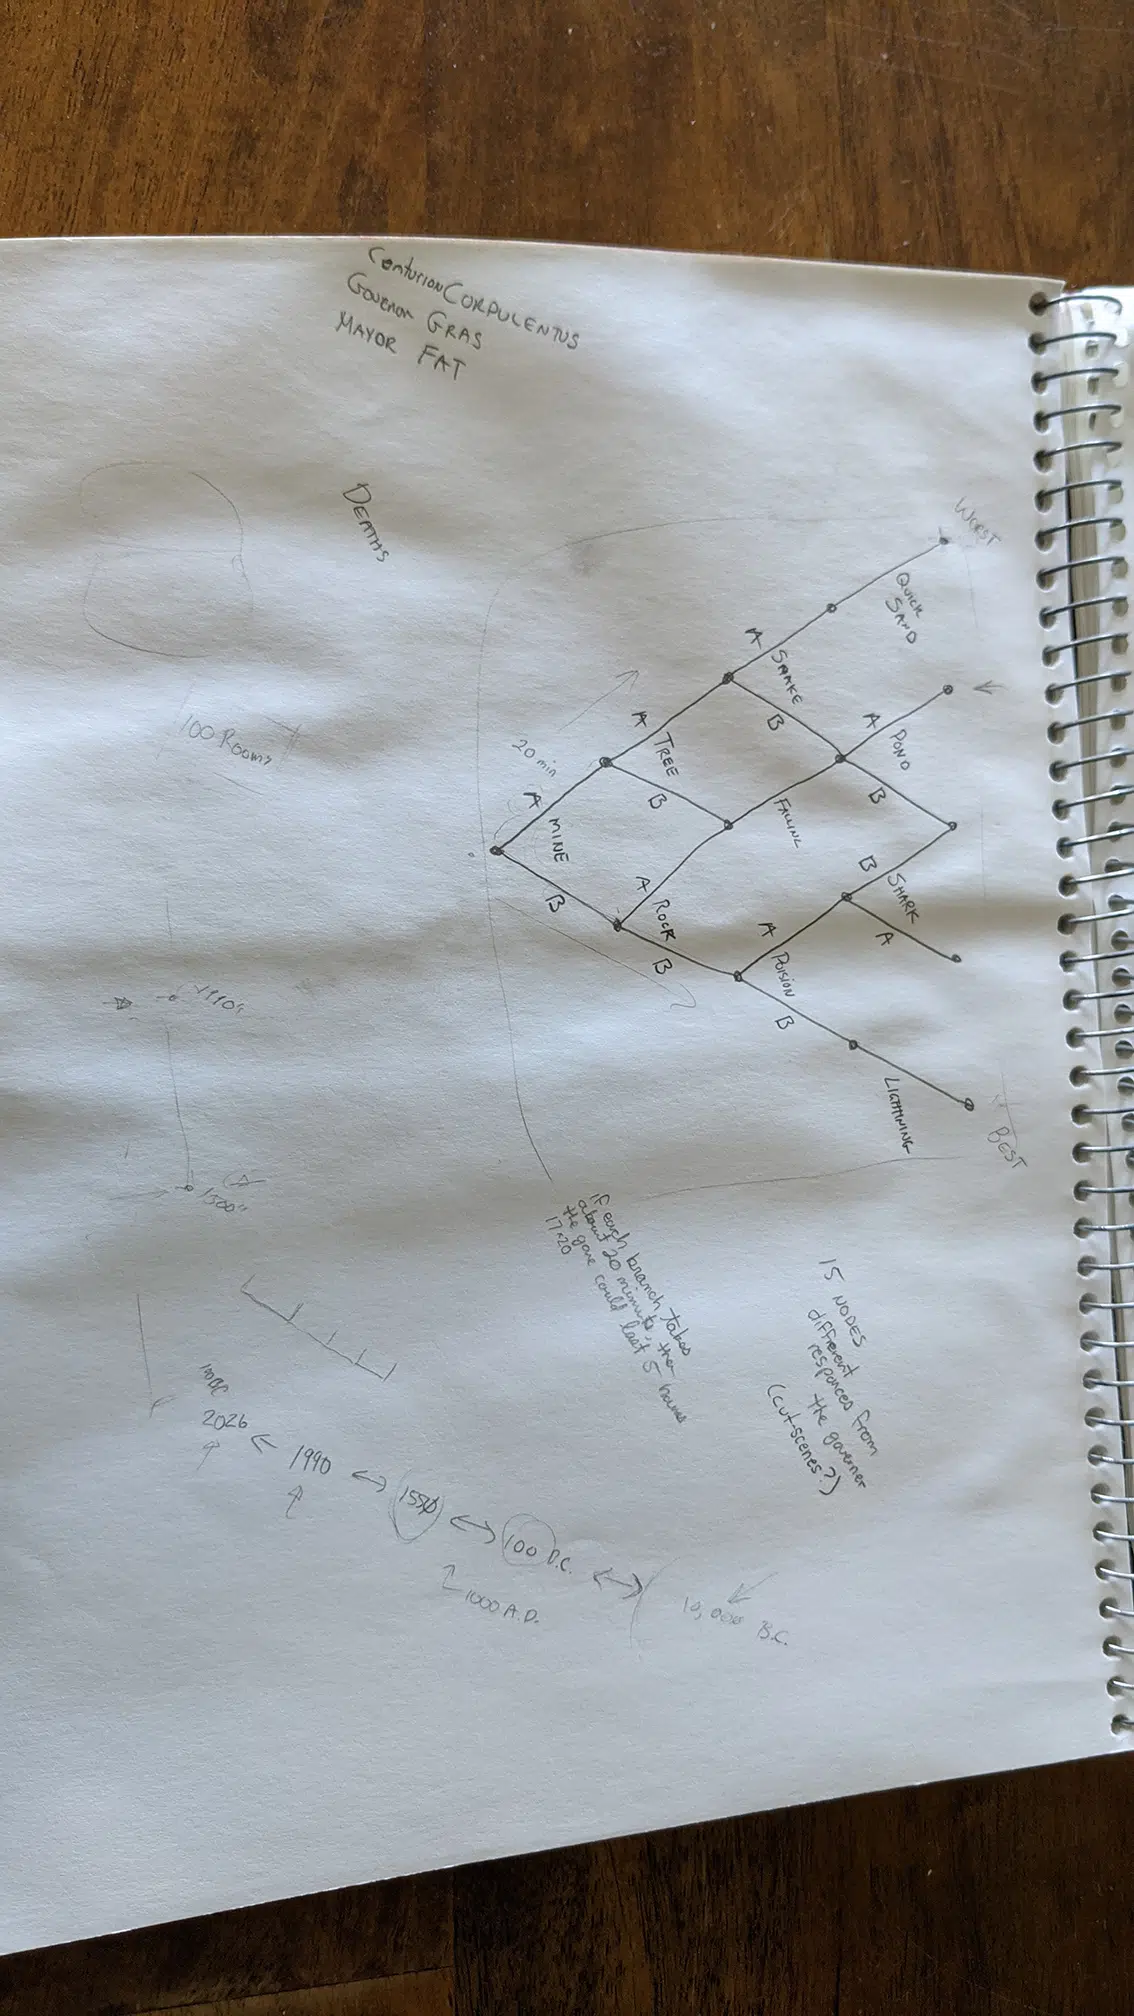 Centurion CORPULENTUS
Governor GRAS
MAYOR FAT
DEATHS
WORST
QUICK
SAND
A SNAKE
B
A POND
B
A TREE
B
20 min
FALLING
A MINE
B
B SHARK
A
A ROCK
B
A POISION
B
LIGHTNING
BEST
100 Rooms
1500"
if each branch takes
about 20 minutes, then
the game could last 5 hours
17×20
15 NODES
different
responces from
the governer
(cut-scenes?)
2026
1990
1550
100 B.C.
1000 A.D.
10,000 B.C.